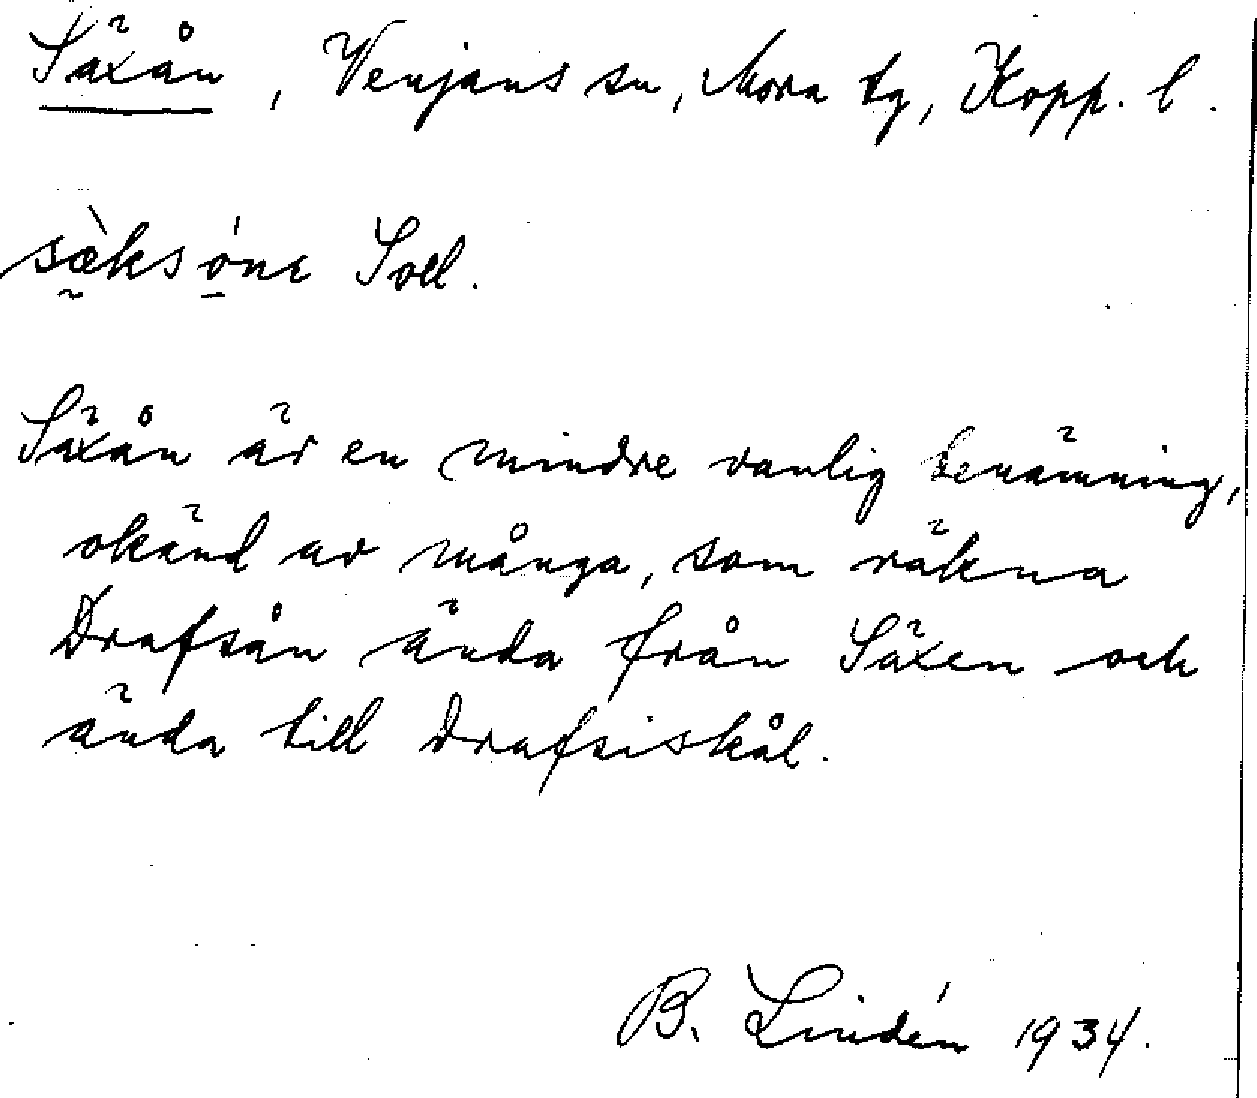 Säxån, Venjans sn, Mora tg, Kopp. l.
sæ̀ksóne Soll.
Säxån är en mindre vanlig benämning,
okänd av många, som räkna
Drafsån ända från Säxen och
ända till Drafsiskål.
B. Lindén 1934.